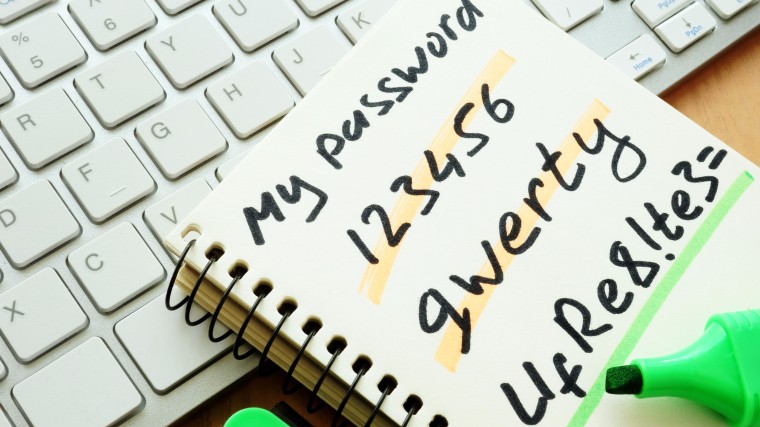 My password
123456
qwerty
UfRe8!te3=
%
5
6
R T Y U
D F G H J K
X C V
Home
PgUp
PgDn